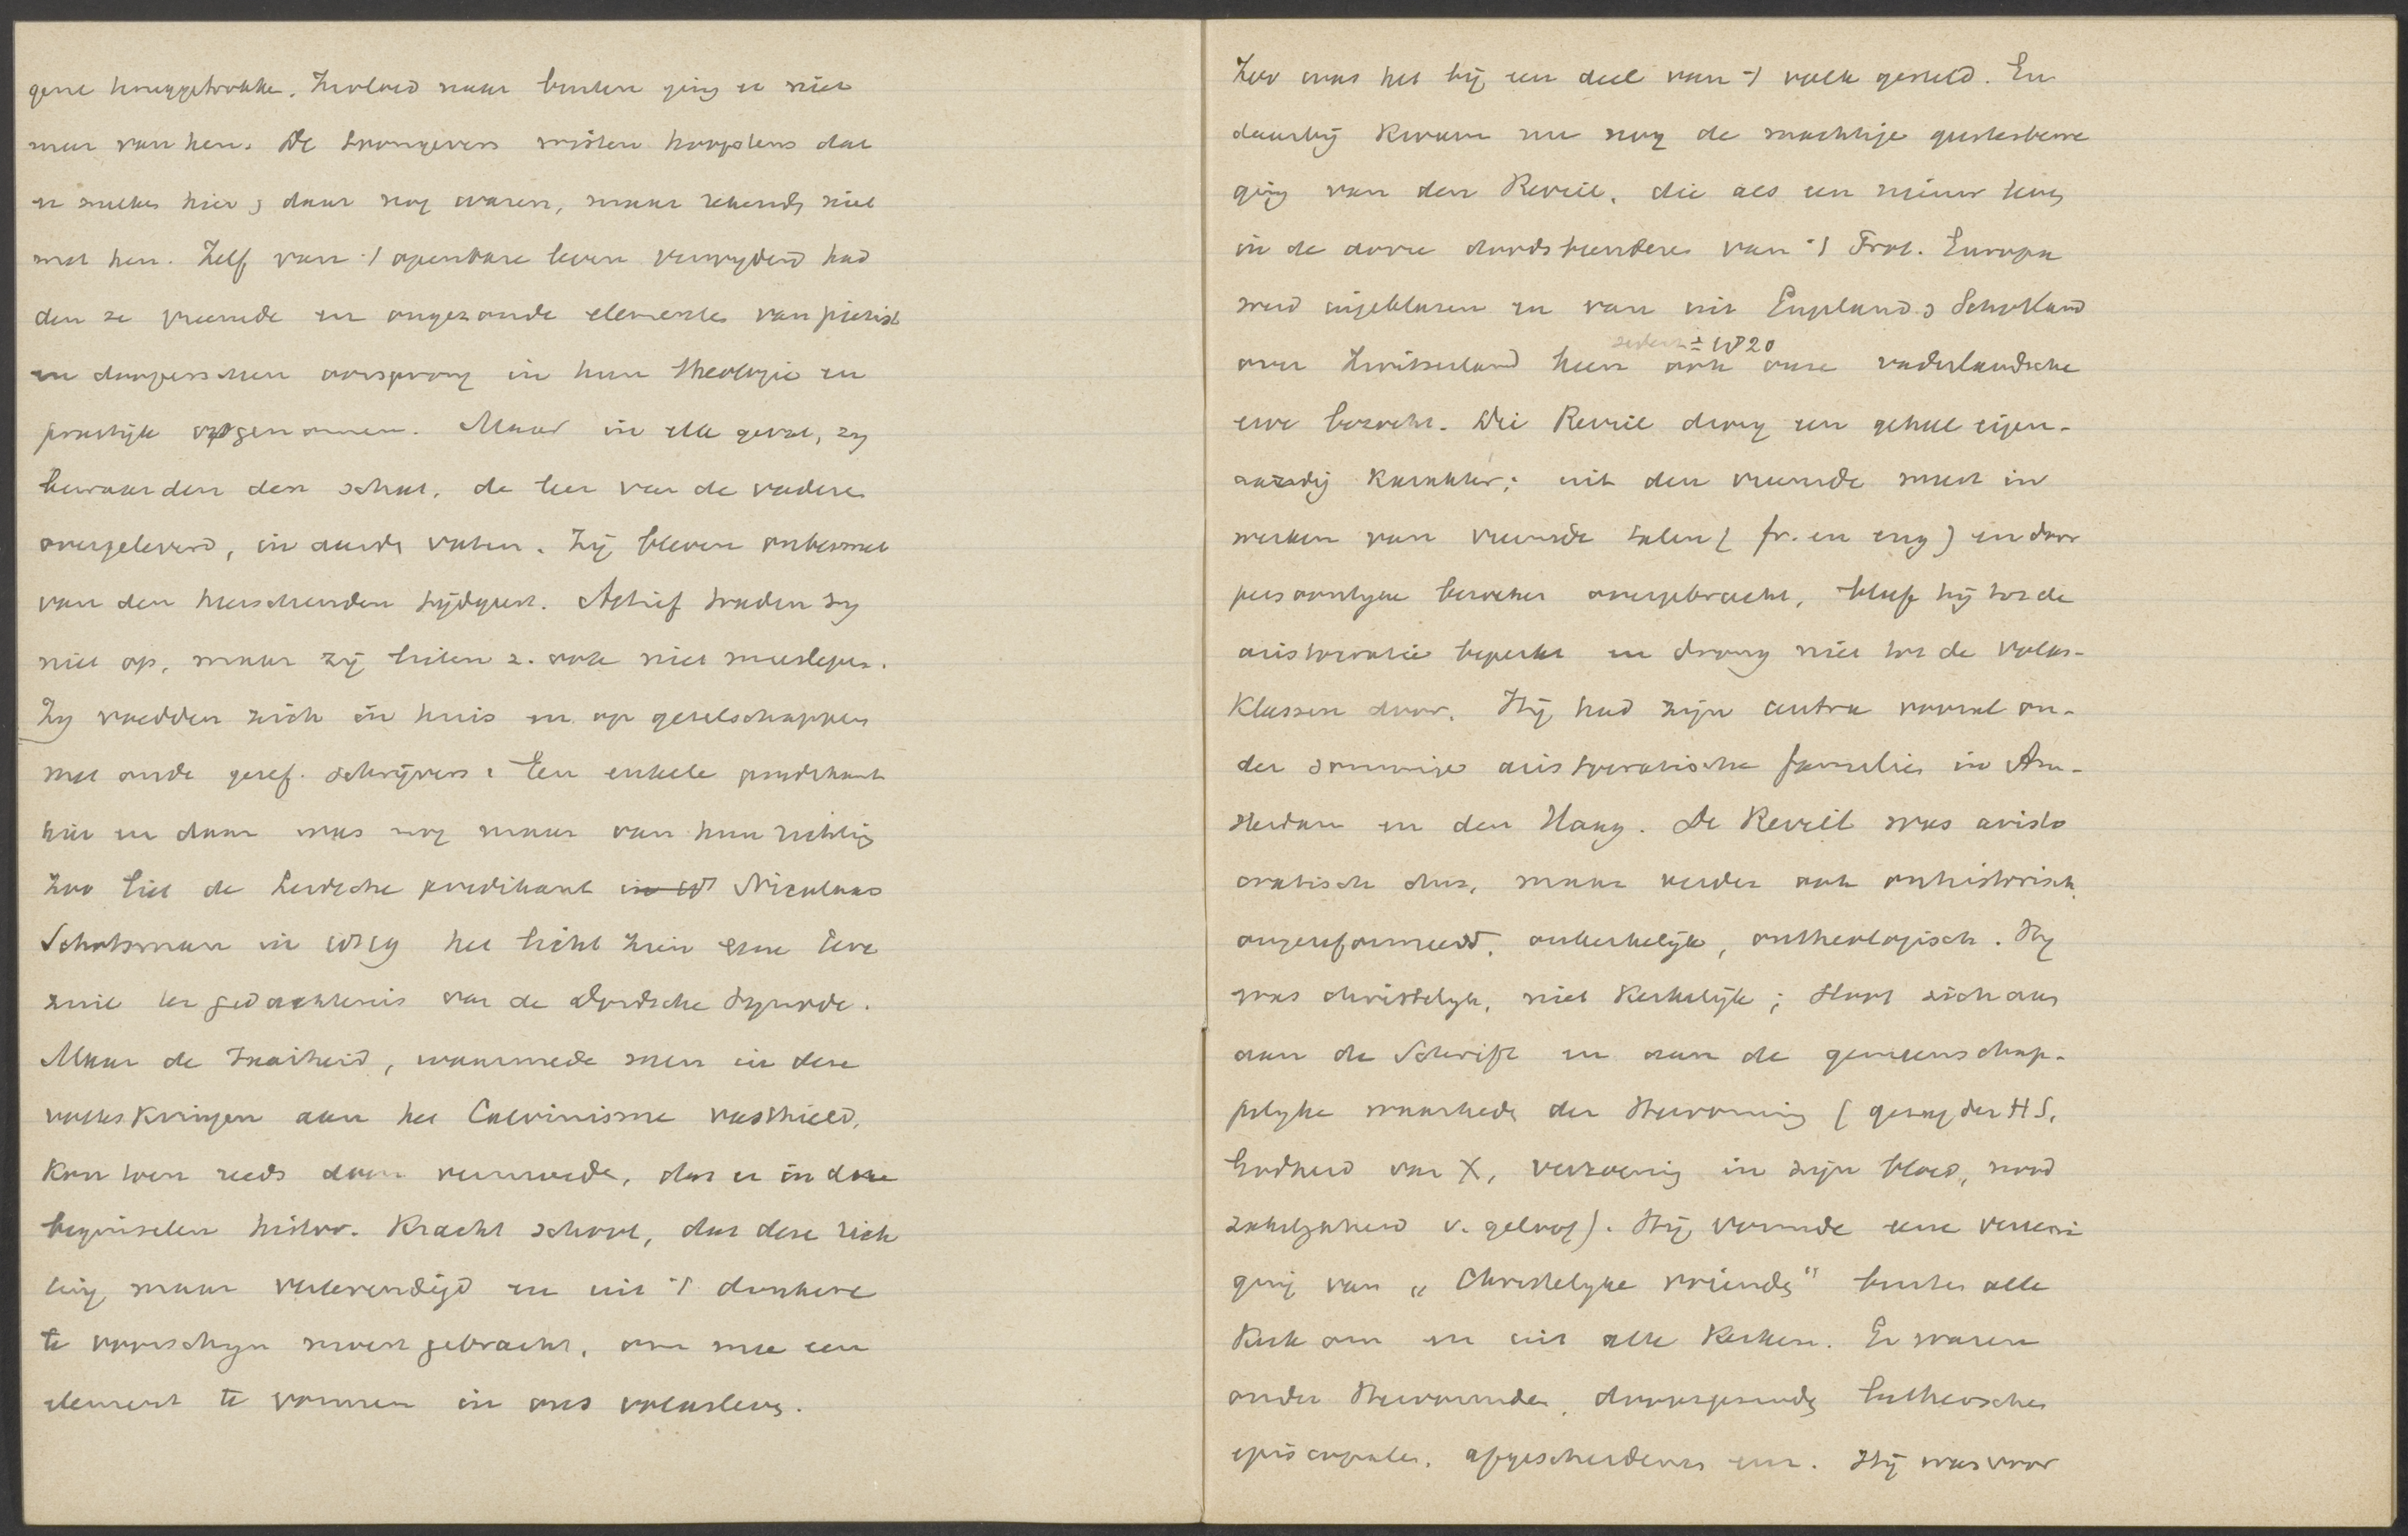 gene teruggetrokken. Invloed naar buiten ging er niet
meer van hen. De toongevers wisten hoogstens dat
er zulken hier & daar nog waren, maar rekenden niet
met hen. Zelf van 't openbare leven verwyderd had
den ze vreemde en ongezonde elementen van piëtist
en doopersschen oorsprong in hun theologie en
praktijk opgenomen. Maar in elk geval, zy
bewaarden den schat, de leer van de vaderen
overgeleverd, in aarden vaten. Zij bleven onbesmet
van den heerschenden tijdgeest. Actief traden zy
niet op, maar zij lieten z. ook niet meeslepen.
Zy voedden zich in huis en op gezelschappen
met oude geref. schrijvers. Een enkele predikant
hier en daar was nog maar van hun richting
Zoo liet de Leidsche predikant Nicolaas
Schotsman in 1819 het licht zien eene Eere
zuil ter gedachtenis van de Dordsche Synode.
Maar de taaiheid, waarmede men in deze
volkskringen aan het Calvinisme vasthield,
kon toen reeds doen vermoeden, dat er in deze
beginselen histor. kracht school, dat deze rich
ting maar verlevendigd en uit 't donkere
te voorschyn moest gebracht, om mee een
element te vormen in ons volksleven.
Zoo was het bij een deel van 't volk gesteld. En
daarbij kwam nu nog de machtige geestesbewe
ging van den Reveil, die als een nieuw leven
in de dorre doodsbeenderen van 't Prot. Europa
werd ingeblazen en van uit Engeland & Schotland
sedert ± 1820
over Zwitserland heen ook onze vaderlandsche
erve bezocht. Die Reveil droeg een geheel eigen-
aardig karakter; uit den vreemde meest in
werken van vreemde talen (fr. en eng) en door
persoonlyke bezoeken overgebracht, bleef hij tot de
aristocratie beperkt en drong niet tot de volks-
klassen door. Hij had zijn centra vooral on-
der sommige aristocratische families in Am-
sterdam en den Haag. De Reveil was aristo
cratisch dus, maar verder ook onhistorisch,
ongereformeerd, onkerkelijk, ontheologisch. Hy
was christelyk, niet kerkelijk; sloot zich aan
aan de Schrift en aan de gemeenschap-
pelyke waarheden der Hervorming (gezag der HS,
Godheid van X, verzoening in zijn bloed, nood
zakelykheid v. geloof). Hij vormde eene vereeni
ging van „Christelyke vrienden" buiten alle
kerk om en uit alle kerken. Er waren
onder Hervormden, doopsgezinden, Luthersche
episcopalen, afgescheidenen enz. Hij was voor